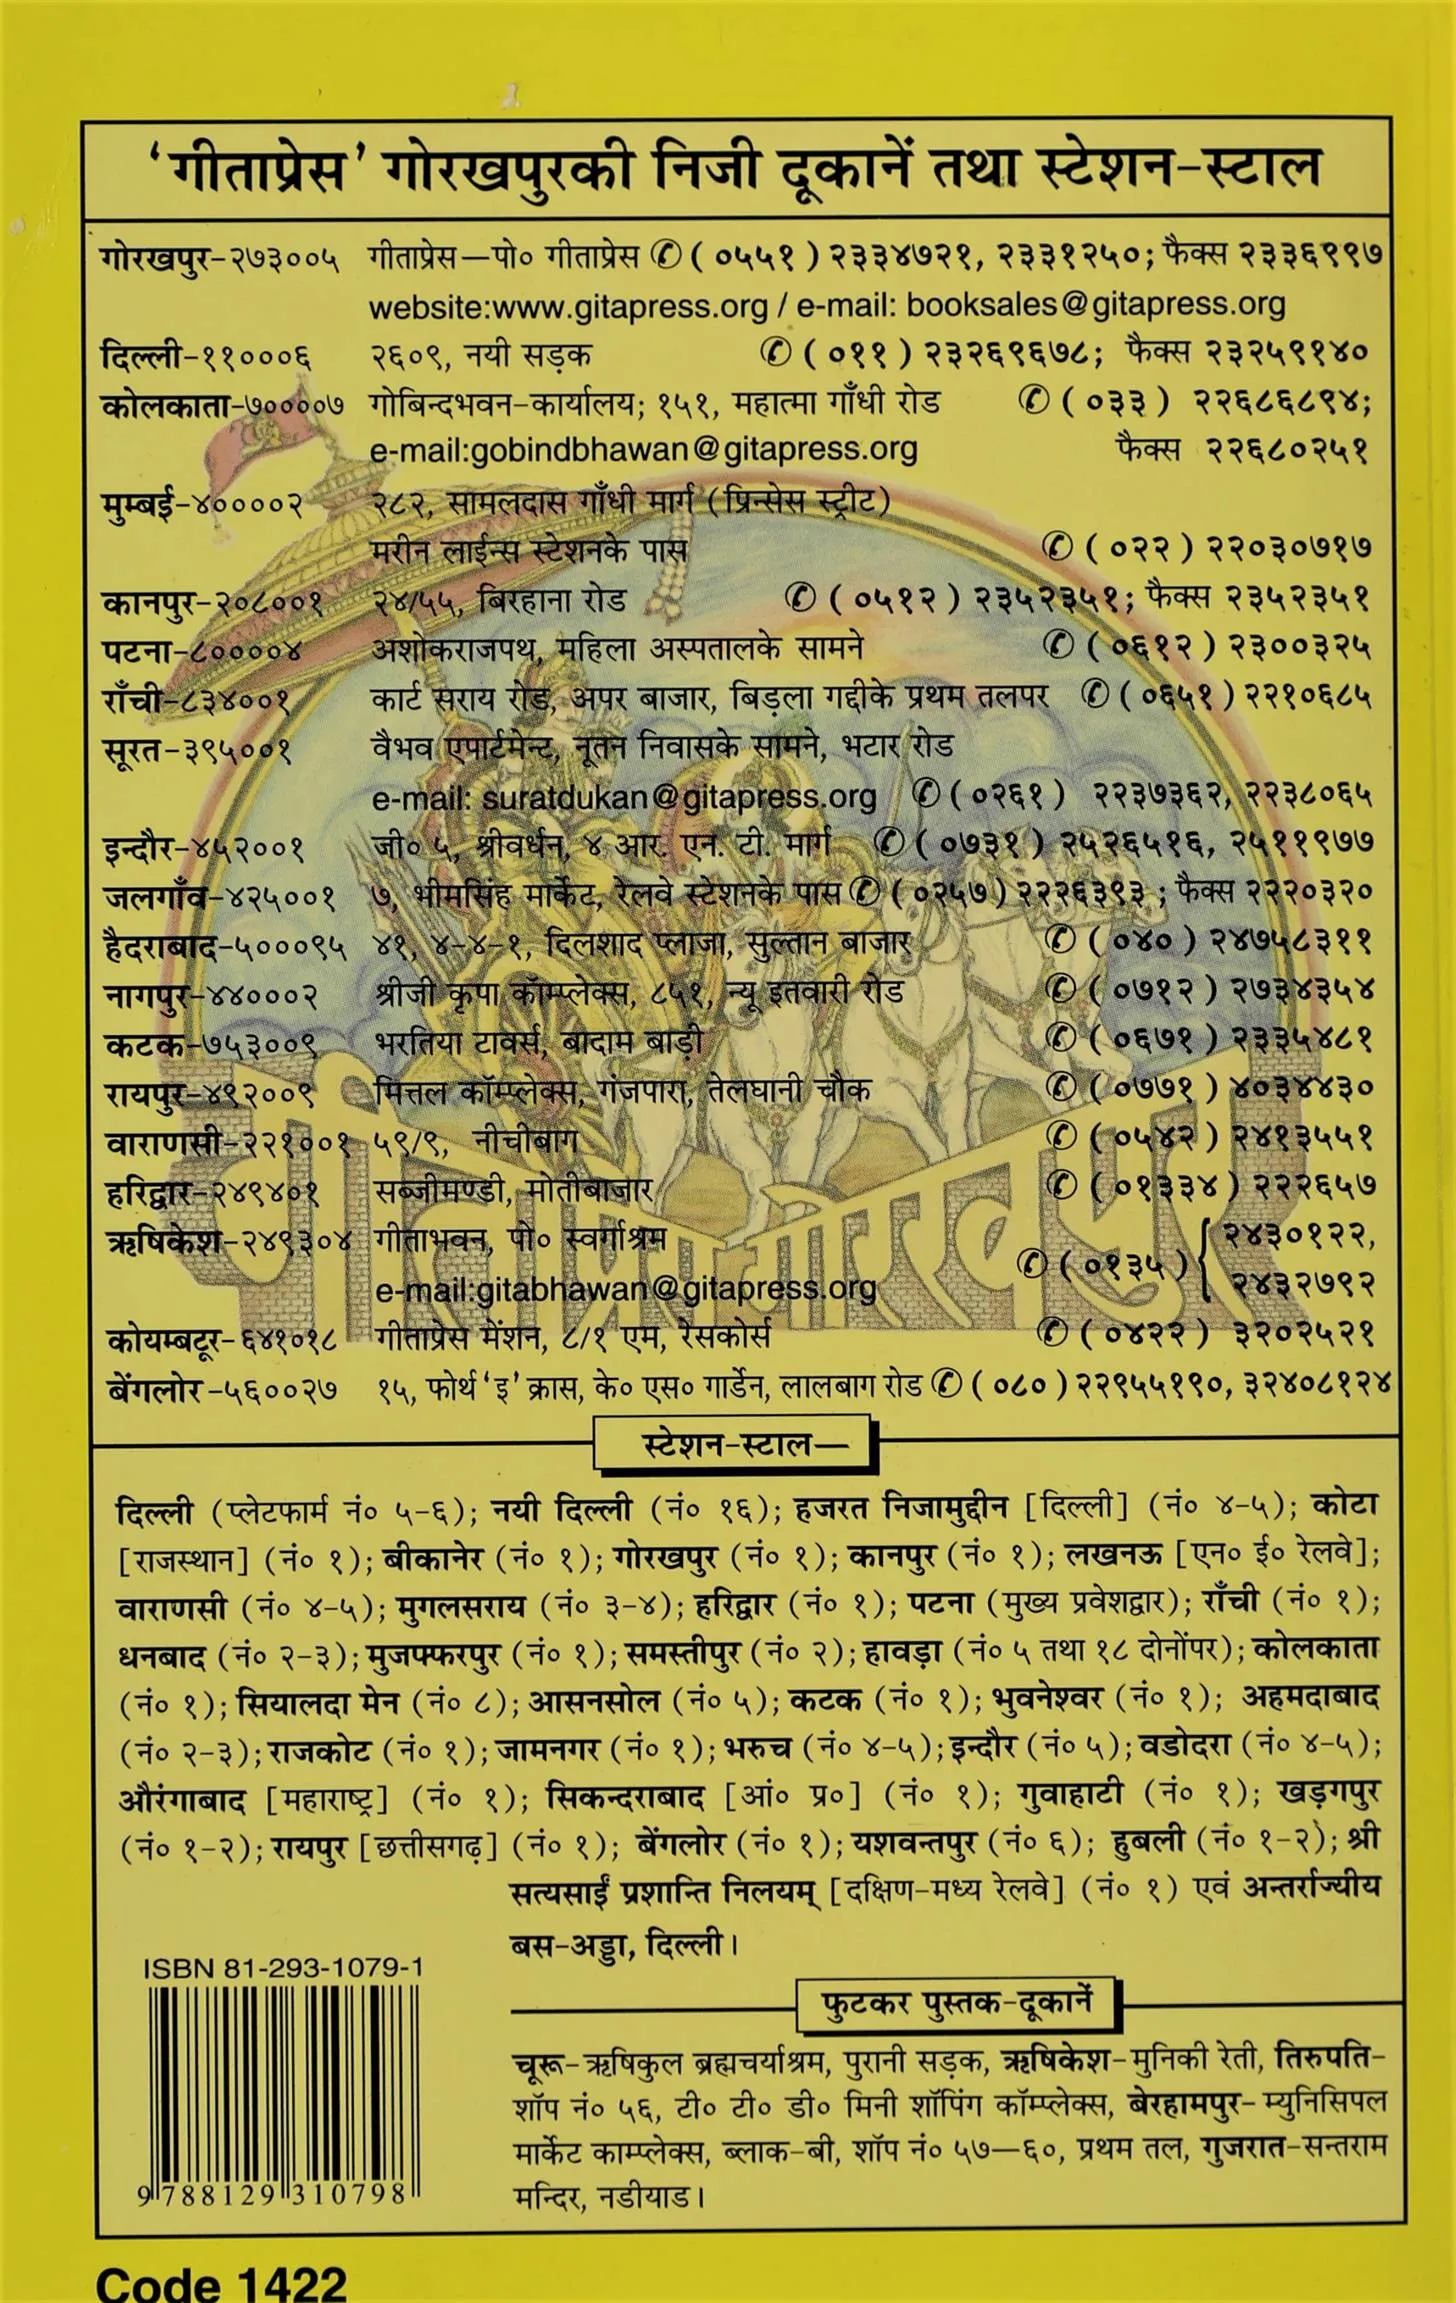 ‘गीताप्रेस’ गोरखपुरकी निजी दूकानें तथा स्टेशन-स्टाल
गोरखपुर-२७३००५ गीताप्रेस—पो० गीताप्रेस ✆ ( ०५५१ ) २३३४७२१, २३३१२५०; फैक्स २३३६९९७
website:www.gitapress.org / e-mail: booksales@gitapress.org
दिल्ली-११०००६ २६०९, नयी सड़क ✆ ( ०११ ) २३२६९६७८; फैक्स २३२५९१४०
कोलकाता-७००००७ गोबिन्दभवन-कार्यालय; १५१, महात्मा गाँधी रोड ✆ ( ०३३ ) २२६८६८९४;
e-mail:gobindbhawan@gitapress.org फैक्स २२६८०२५१
मुम्बई-४००००२ २८२, सामलदास गाँधी मार्ग (प्रिन्सेस स्ट्रीट)
मरीन लाईन्स स्टेशनके पास ✆ ( ०२२ ) २२०३०७१७
कानपुर-२०८००१ २४/५५, बिरहाना रोड ✆ ( ०५१२ ) २३५२३५१; फैक्स २३५२३५१
पटना-८००००४ अशोकराजपथ, महिला अस्पतालके सामने ✆ ( ०६१२ ) २३००३२५
राँची-८३४००१ कार्ट सराय रोड, अपर बाजार, बिड़ला गद्दीके प्रथम तलपर ✆ ( ०६५१ ) २२१०६८५
सूरत-३९५००१ वैभव एपार्टमेन्ट, नूतन निवासके सामने, भटार रोड
e-mail: suratdukan@gitapress.org ✆ ( ०२६१ ) २२३७३६२, २२३८०६५
इन्दौर-४५२००१ जी० ५, श्रीवर्धन, ४ आर. एन. टी. मार्ग ✆ ( ०७३१ ) २५२६५१६, २५११९७७
जलगाँव-४२५००१ ७, भीमसिंह मार्केट, रेलवे स्टेशनके पास ✆ ( ०२५७ ) २२२६३९३ ; फैक्स २२२०३२०
हैदराबाद-५०००९५ ४१, ४-४-१, दिलशाद प्लाजा, सुल्तान बाजार ✆ ( ०४० ) २४७५८३११
नागपुर-४४०००२ श्रीजी कृपा कॉम्प्लेक्स, ८५१, न्यू इतवारी रोड ✆ ( ०७१२ ) २७३४३५४
कटक-७५३००९ भरतिया टावर्स, बादाम बाड़ी ✆ ( ०६७१ ) २३३५४८१
रायपुर-४९२००९ मित्तल कॉम्प्लेक्स, गंजपारा, तेलघानी चौक ✆ ( ०७७१ ) ४०३४४३०
वाराणसी-२२१००१ ५९/९, नीचीबाग ✆ ( ०५४२ ) २४१३५५१
हरिद्वार-२४९४०१ सब्जीमण्डी, मोतीबाजार ✆ ( ०१३३४ ) २२२६५७
ऋषिकेश-२४९३०४ गीताभवन, पो० स्वर्गाश्रम ✆ ( ०१३५ ) { २४३०१२२,
e-mail:gitabhawan@gitapress.org २४३२७९२
कोयम्बटूर-६४१०१८ गीताप्रेस मेंशन, ८/१ एम, रेसकोर्स ✆ ( ०४२२ ) ३२०२५२१
बेंगलोर-५६००२७ १५, फोर्थ ‘इ’ क्रास, के० एस० गार्डेन, लालबाग रोड ✆ ( ०८० ) २२९५५१९०, ३२४०८१२४
गीताप्रेस गोरखपुर
स्टेशन-स्टाल—
दिल्ली (प्लेटफार्म नं० ५-६); नयी दिल्ली (नं० १६); हजरत निजामुद्दीन [दिल्ली] (नं० ४-५); कोटा
[राजस्थान] (नं० १); बीकानेर (नं० १); गोरखपुर (नं० १); कानपुर (नं० १); लखनऊ [एन० ई० रेलवे];
वाराणसी (नं० ४-५); मुगलसराय (नं० ३-४); हरिद्वार (नं० १); पटना (मुख्य प्रवेशद्वार); राँची (नं० १);
धनबाद (नं० २-३); मुजफ्फरपुर (नं० १); समस्तीपुर (नं० २); हावड़ा (नं० ५ तथा १८ दोनोंपर); कोलकाता
(नं० १); सियालदा मेन (नं० ८); आसनसोल (नं० ५); कटक (नं० १); भुवनेश्वर (नं० १); अहमदाबाद
(नं० २-३); राजकोट (नं० १); जामनगर (नं० १); भरुच (नं० ४-५); इन्दौर (नं० ५); वडोदरा (नं० ४-५);
औरंगाबाद [महाराष्ट्र] (नं० १); सिकन्दराबाद [आं० प्र०] (नं० १); गुवाहाटी (नं० १); खड़गपुर
(नं० १-२); रायपुर [छत्तीसगढ़] (नं० १); बेंगलोर (नं० १); यशवन्तपुर (नं० ६); हुबली (नं० १-२); श्री
सत्यसाईं प्रशान्ति निलयम् [दक्षिण-मध्य रेलवे] (नं० १) एवं अन्तर्राज्यीय
बस-अड्डा, दिल्ली।
ISBN 81-293-1079-1
9 788129 310798
फुटकर पुस्तक-दूकानें
चूरू-ऋषिकुल ब्रह्मचर्याश्रम, पुरानी सड़क, ऋषिकेश-मुनिकी रेती, तिरुपति-
शॉप नं० ५६, टी० टी० डी० मिनी शॉपिंग कॉम्प्लेक्स, बेरहामपुर- म्युनिसिपल
मार्केट काम्प्लेक्स, ब्लाक-बी, शॉप नं० ५७—६०, प्रथम तल, गुजरात-सन्तराम
मन्दिर, नडीयाड।
Code 1422